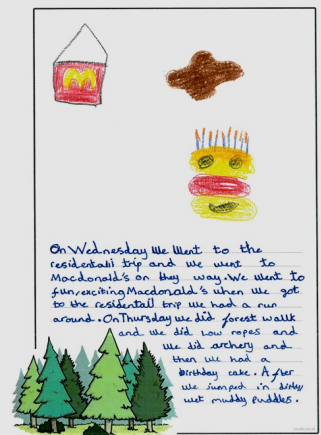 M
On Wednesday we went to the
residentail trip and we went to
Macdonald's on they way. We went to
fun,exciting Macdonald's when we got
to the residentail trip we had a run
around. On Thursday we did forest wallk
and we did low ropes and
we did archery and
then we had a
birthday cake. After
we jumped in dirtey
wet muddy puddles.